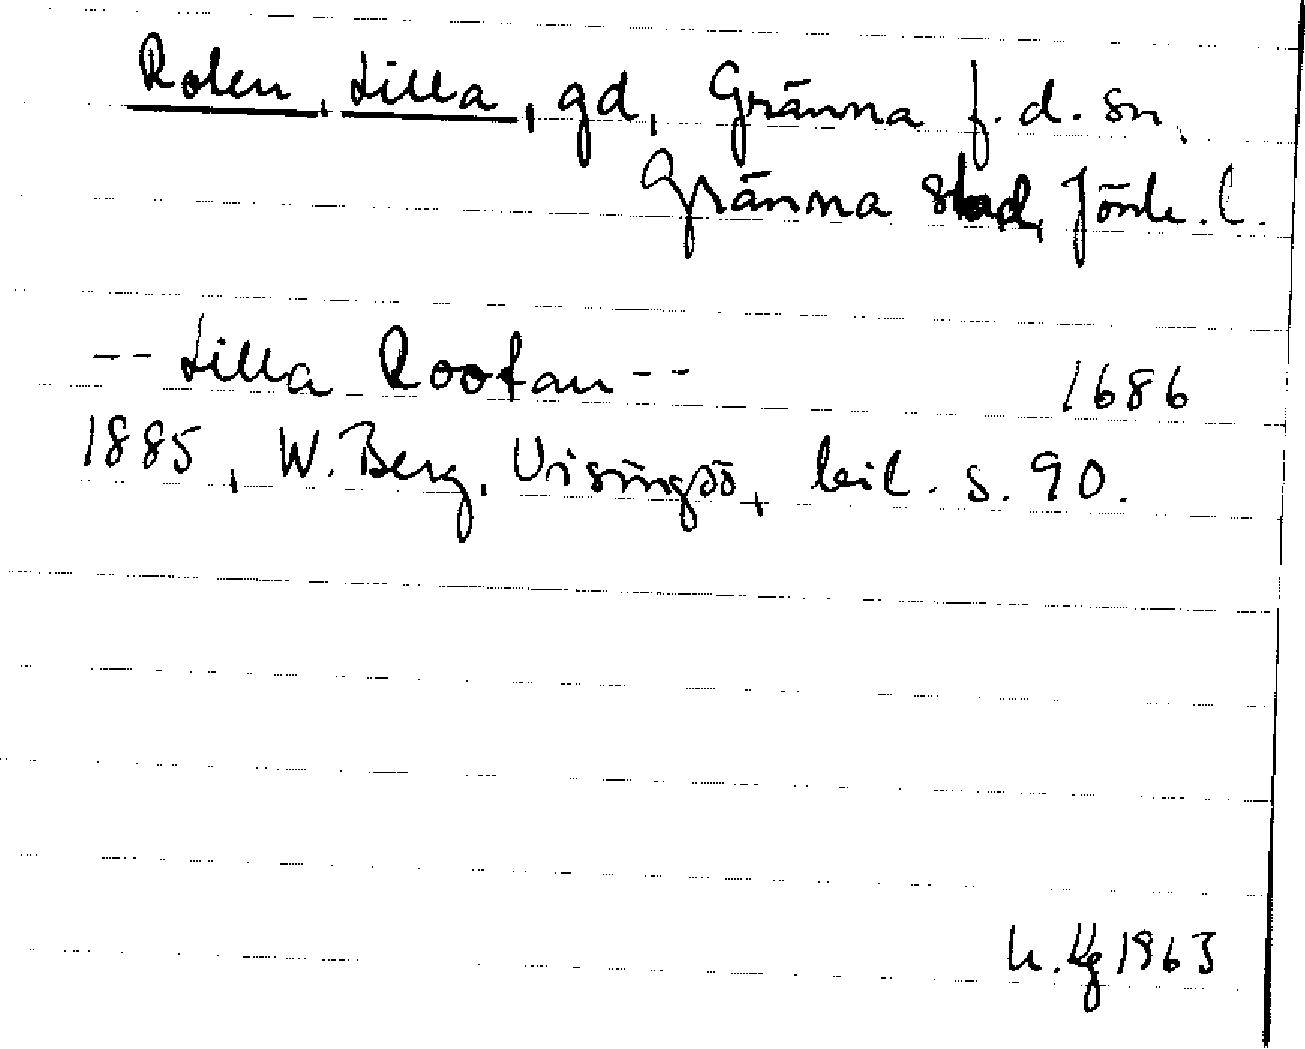 Roten, Lilla, gd, Gränna f.d. sn,
Gränna stad, Jönk. l.
-- Lilla Rootan -- 1686
1885, W. Berg, Visingsö, bil. s. 90.
1963